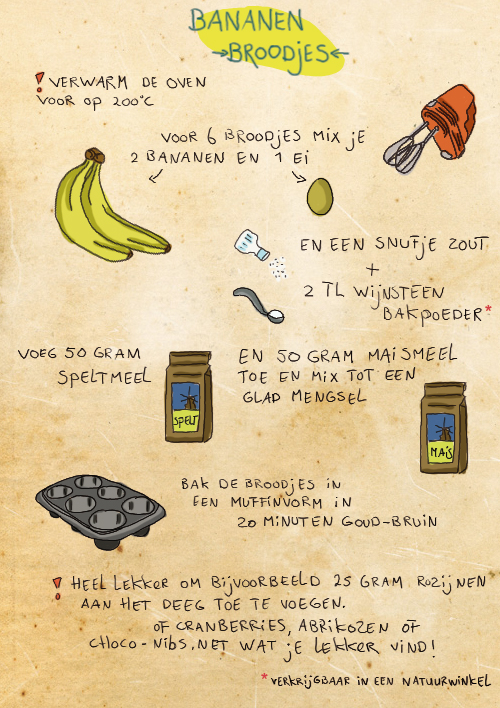 BANANEN
BROODJES
! VERWARM DE OVEN
VOOR OP 200°C
VOOR 6 BROODJES MIX JE
2 BANANEN EN 1 EI
EN EEN SNUFJE ZOUT
+
2 TL WIJNSTEEN
BAKPOEDER*
VOEG 50 GRAM
SPELTMEEL
EN 50 GRAM MAISMEEL
TOE EN MIX TOT EEN
GLAD MENGSEL
SPELT
MAIS
BAK DE BROODJES IN
EEN MUFFINVORM IN
20 MINUTEN GOUD-BRUIN
! HEEL LEKKER OM BIJVOORBEELD 25 GRAM ROZIJNEN
AAN HET DEEG TOE TE VOEGEN.
OF CRANBERRIES, ABRIKOZEN OF
CHOCO-NIBS, NET WAT JE LEKKER VIND!
*VERKRIJGBAAR IN EEN NATUURWINKEL